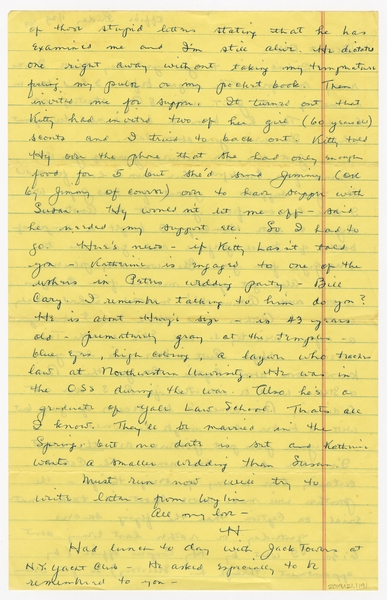 of those stupid letters stating that he has
examined me and I'm still alive. He dictated
one right away without taking my temperature
feeling my pulse or my pocket book. Then
invited me for supper. It turned out that
Kitty had invited two of her girl (60 years old)
scouts and I tried to back out. Kitty told
Hy over the phone that she had only enough
food for 5 but she'd send Jimmy (OK
by Jimmy of course) over to have supper with
Susan. Hy wouldn't let me off - said
he needed my support etc. So I had to
go. Here's news - if Kitty hasn't told
you - Katherine is engaged to one of the
ushers in Patsos wedding party - Bill
Cary. I remember talking to him do you?
He is about Hray's size - is 43 years
old - prematurely gray at the temples -
blue eyes, high coloring, a lawyer who teaches
law at Northwestern University. He was in
the OSS during the war. Also he's a
graduate of Yale Law School. That's all
I know. They'll be married in the
Spring. But no date is set and Katherine
wants a smaller wedding than Susan.
Must run now will try to
write later - from Wylin
All my love -
H
Had lunch to day with Jack Towers at
N.Y. Yacht Club - He asked especially to be
remembered to you -